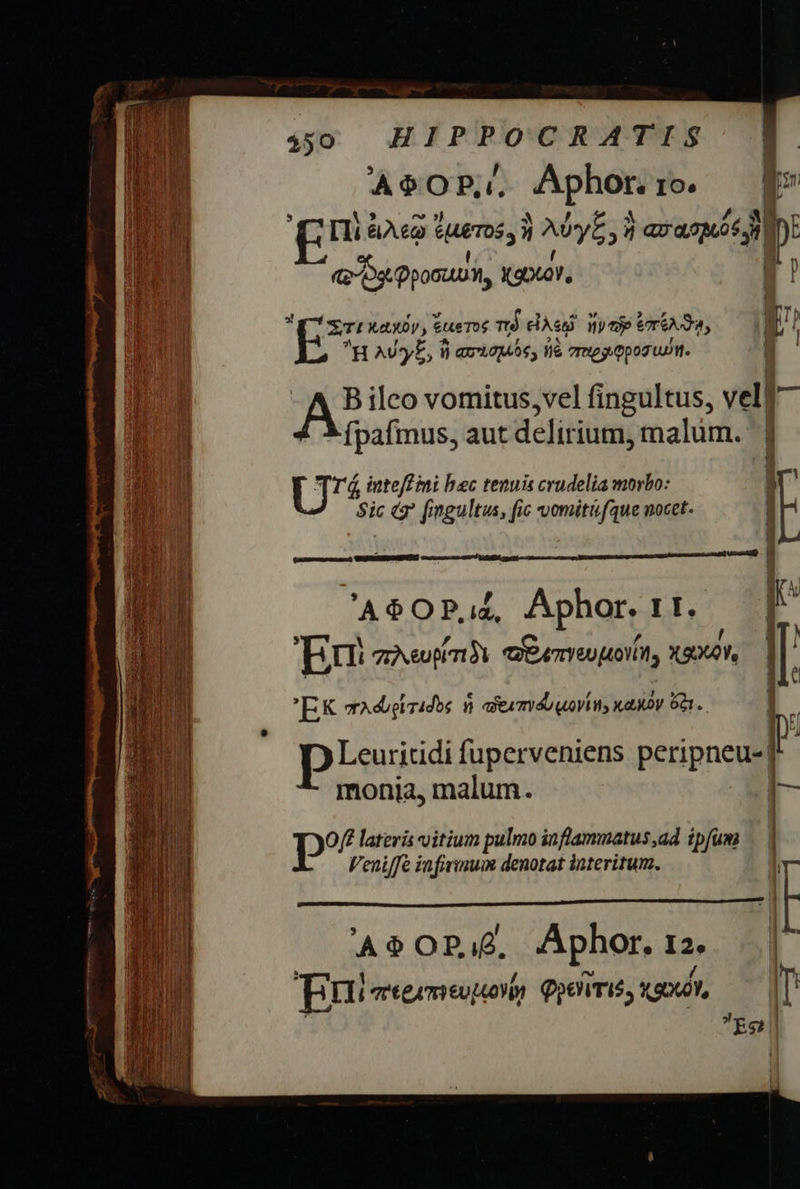 450 HIPPOCRATIS
ἈΦΟΡ. ί. Aphor. 10.
Ἐπὶ εἰλεῷ ἔμετος, ἢ λύγξ, ἢ σπασμὸς, ἢ
παραφροσύνη, κακόν.
Ἔστι κακόν, ἔμετος τῷ εἰλεῷ ἤν περ ἐπέλθῃ,
Ἢ λύγξ, ἢ σπασμὸς, ἠὲ παραφροσύνη.
AB ileo vomitus, vel ſingultus, vel
ſpaſmus, aut delirium, malum.
UTrâ inteſtini hæc tenuis crudelia morbo:
Sic & ſingultus, ſic vomitúſque nocet.
ἈΦΟΡ. ιά. Aphor. 11.
Ἐπὶ πλευρίτιδι περιπνευμονίη, κακόν.
Ἐκ πλευρίτιδος ἡ περιπνευμονίη, κακόν ἐστι.
PLeuritidi ſuperveniens peripneu-
monia, malum.
POſt lateris vitium pulmo inflammatus, ad ipſum
Veniſſe infirmum denotat interitum.
ἈΦΟΡ. ιβ. Aphor. 12.
Ἐπὶ περιπνευμονίῃ φρενῖτις, κακόν,
Ἔστι